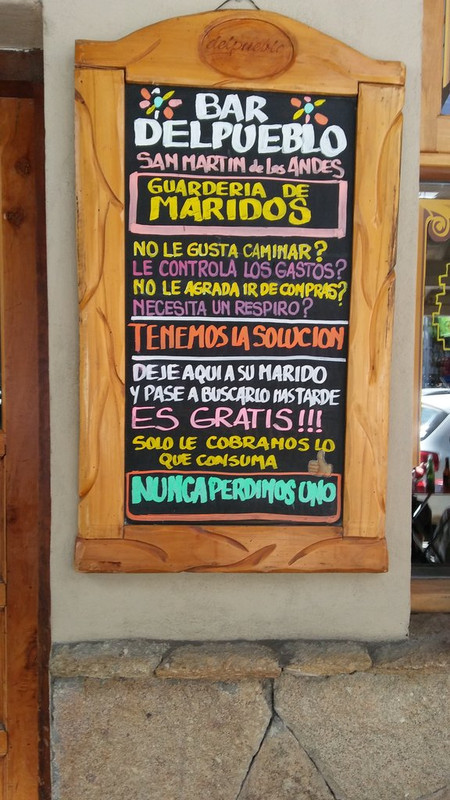 delpueblo
BAR
DELPUEBLO
SAN MARTIN de Los ANDES
GUARDERIA DE
MARIDOS
NO LE GUSTA CAMINAR?
LE CONTROLA LOS GASTOS?
NO LE AGRADA IR DE COMPRAS?
NECESITA UN RESPIRO?
TENEMOS LA SOLUCION
DEJE AQUI A SU MARIDO
Y PASE A BUSCARLO MAS TARDE
ES GRATIS!!!
SOLO LE COBRAMOS LO
QUE CONSUMA
NUNCA PERDIMOS UNO